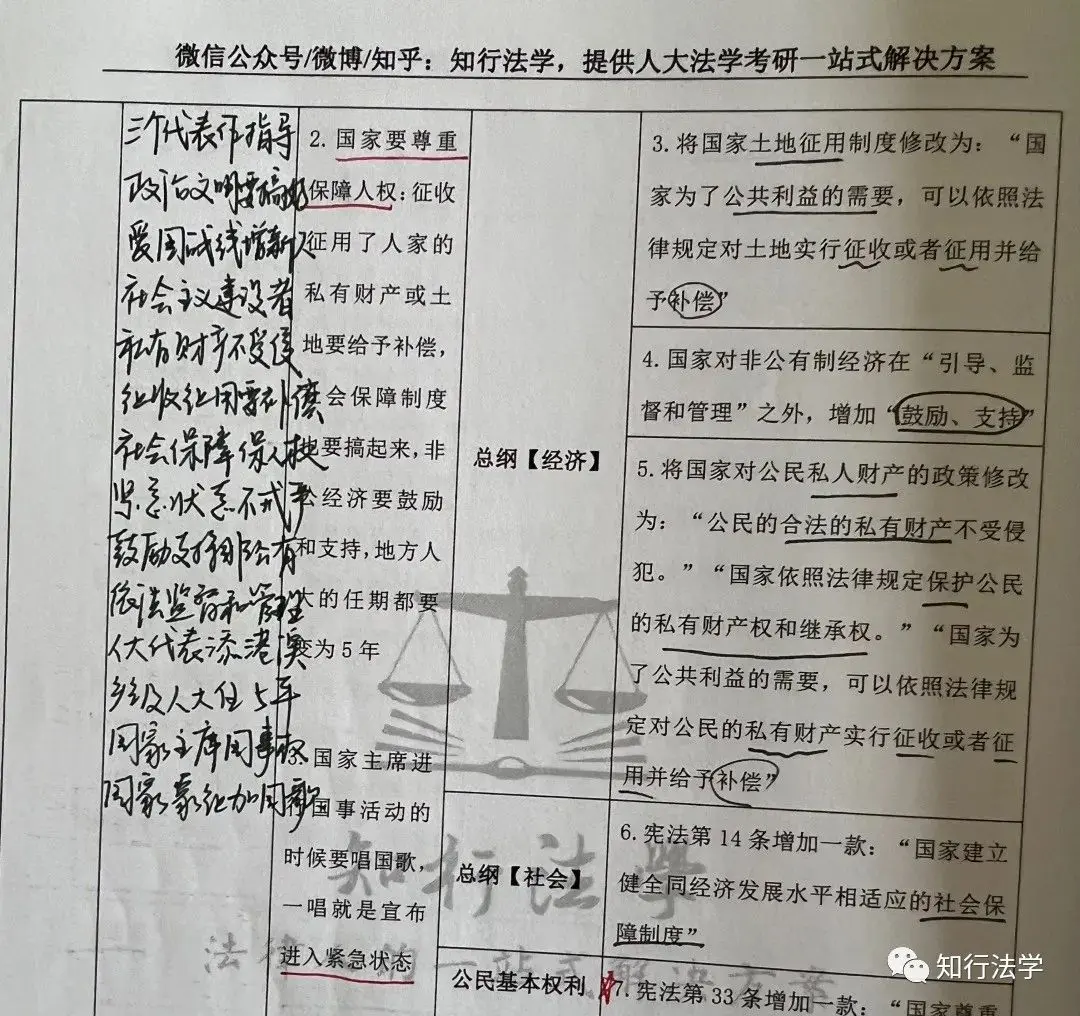 微信公众号/微博/知乎：知行法学，提供人大法学考研一站式解决方案
三个代表作指导
政治文明要搞好
爱国战线增新人
社会主义建设者
私有财产不受侵
征收征用要补偿
社会保障保人权
紧急状态不戒严
鼓励支持非公有
依法监督和管理
人大代表添港澳
乡级人大任5年
国家主席国事权
国家象征加国歌
2. 国家要尊重
保障人权：征收
征用了人家的
私有财产或土
地要给予补偿，
会保障制度
也要搞起来，非
公经济要鼓励
和支持，地方人
大的任期都要
变为 5 年
国家主席进
国事活动的
时候要唱国歌，
一唱就是宣布
进入紧急状态
总纲【经济】
3. 将国家土地征用制度修改为：“国
家为了公共利益的需要，可以依照法
律规定对土地实行征收或者征用并给
予补偿”
4. 国家对非公有制经济在“引导、监
督和管理”之外，增加“鼓励、支持”
5. 将国家对公民私人财产的政策修改
为：“公民的合法的私有财产不受侵
犯。”“国家依照法律规定保护公民
的私有财产权和继承权。”“国家为
了公共利益的需要，可以依照法律规
定对公民的私有财产实行征收或者征
用并给予补偿”
总纲【社会】
6. 宪法第 14 条增加一款：“国家建立
健全同经济发展水平相适应的社会保
障制度”
公民基本权利
7. 宪法第 33 条增加一款：“国家尊重
知行法学
知行法学